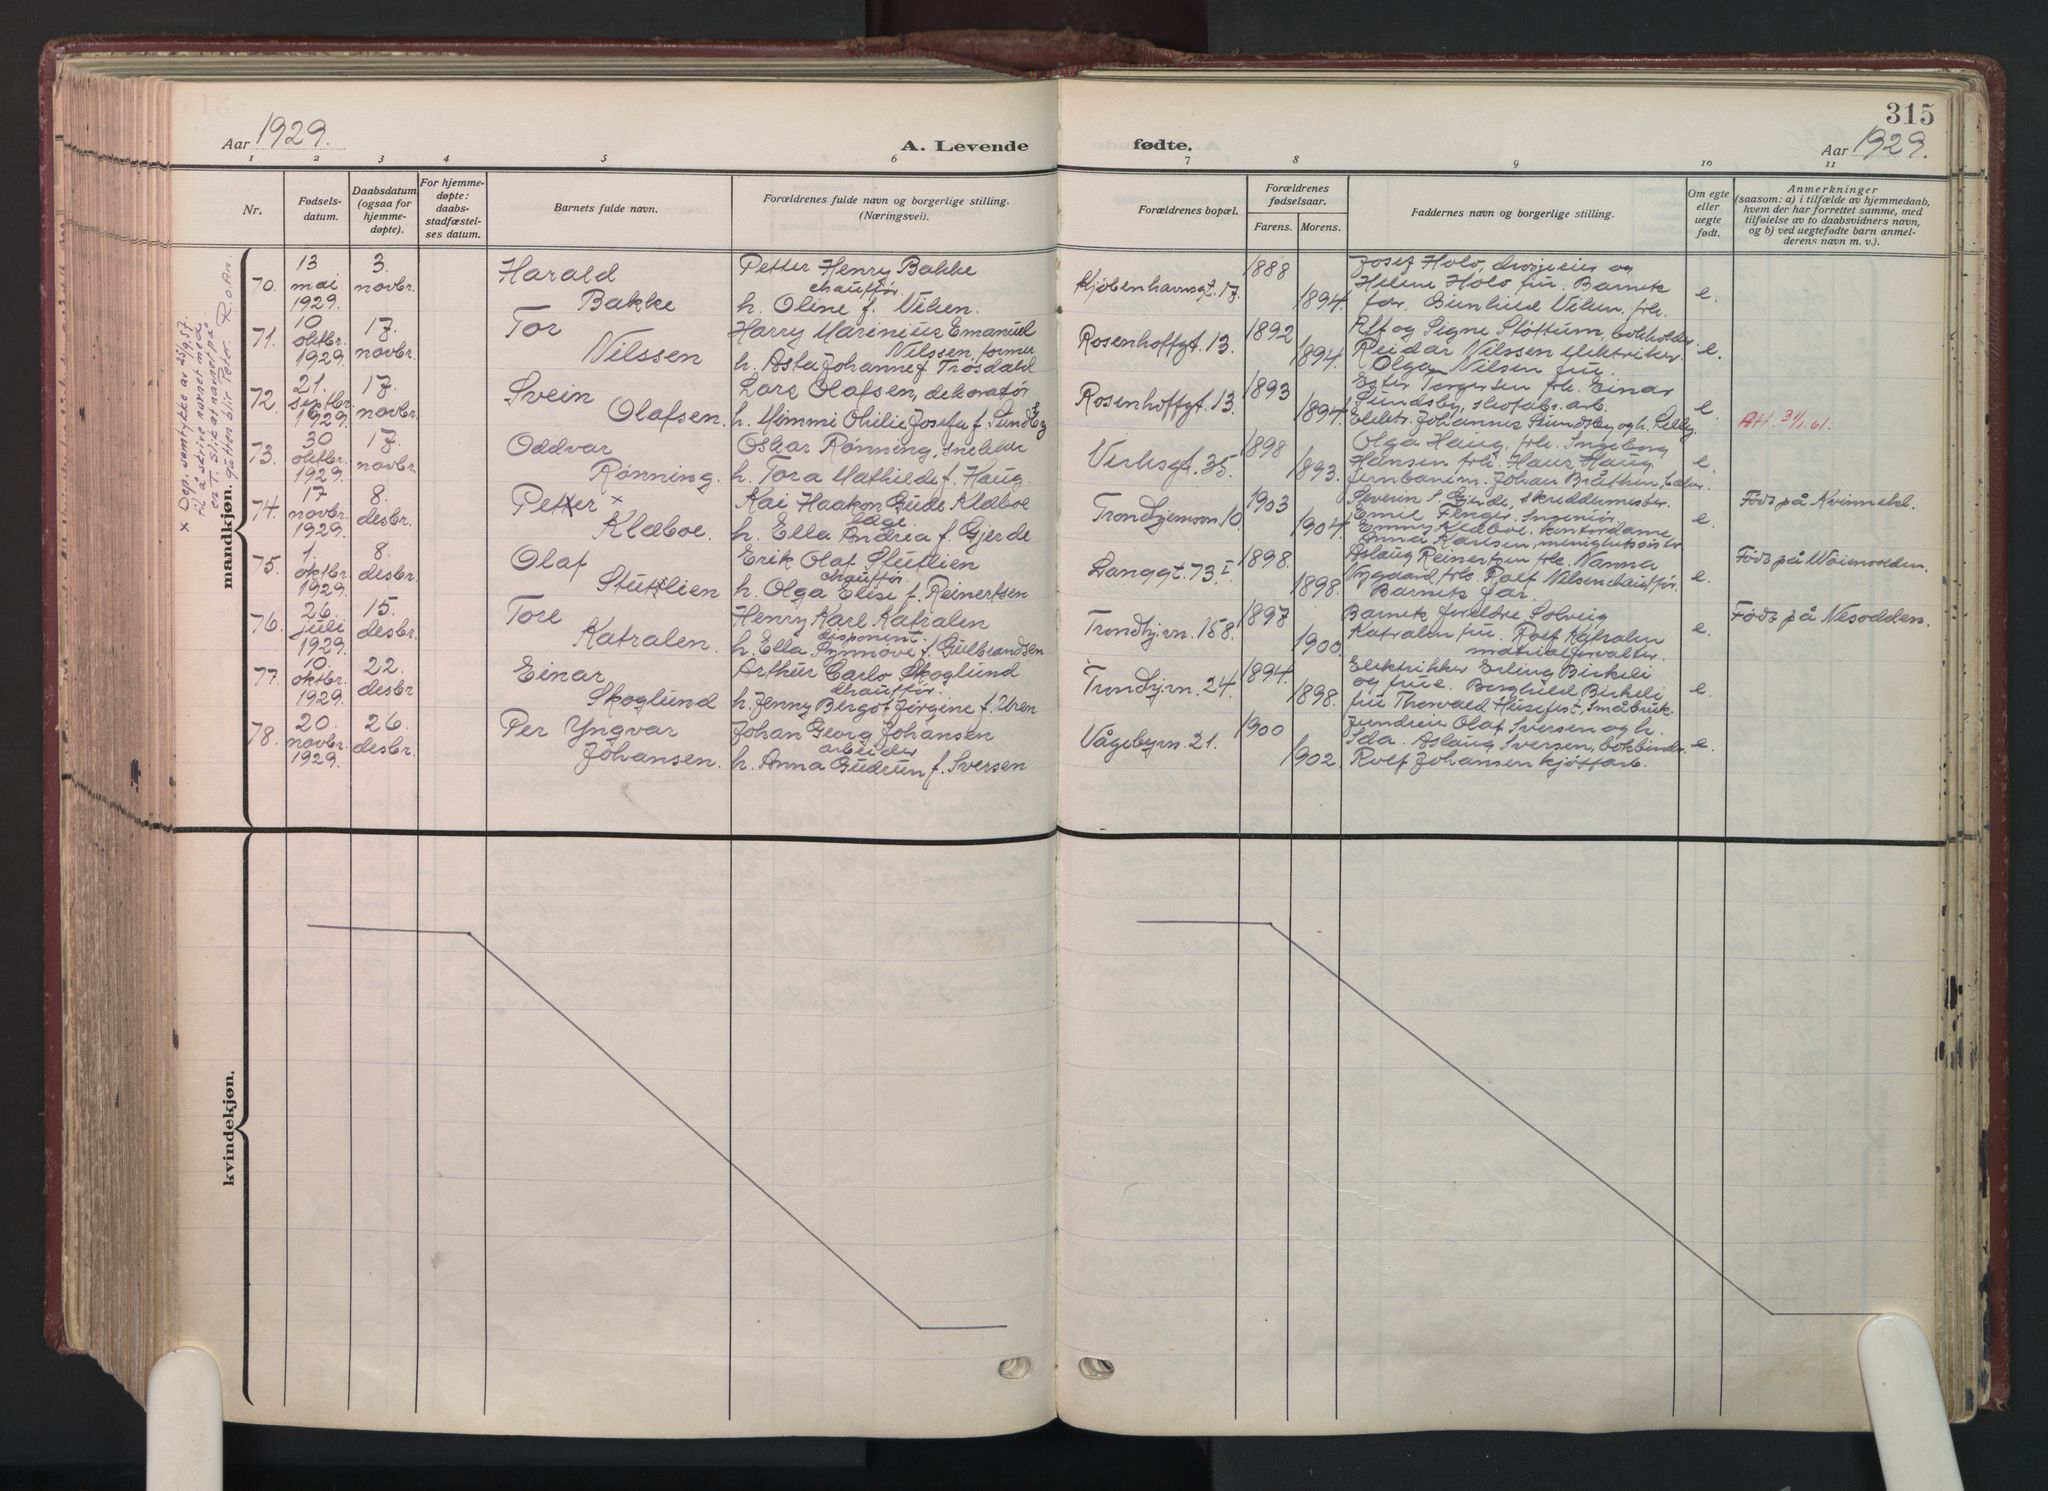 315
Aar 1929.
A. Levende
fødte.
Aar 1929.
1 2 3 4 5 6 7 8 9 10 11
Nr.
Fødsels-
datum.
Daabsdatum
(ogsaa for
hjemme-
døpte).
For hjemme-
døpte:
daabs-
stadfæstel-
ses datum.
Barnets fulde navn.
Forældrenes fulde navn og borgerlige stilling.
(Næringsvei).
Forældrenes bopæl.
Forældrenes
fødselsaar.
Farens. Morens.
Faddernes navn og borgerlige stilling.
Om egte
eller
uegte
født.
Anmerkninger
(saasom: a) i tilfælde av hjemmedaab,
hvem der har forrettet samme, med
tilføielse av to daabsvidners navn,
og b) ved uegtefødte barn anmel-
derens navn m. v.).
x Dep. samtykke av 25/9.57.
til å skrive navnet med
en T. Slik at navnet på
gutten blir Peter. R.o.An.
mandkjøn.
70.
13
mai
1929.
3.
novbr.
Harald
Bakke
Petter Henry Bakke
chauffør
h. Oline f. Vilsen.
Kjøbenhavnsgt. 17.
1888
1894.
Josef Holo, drosjeeier og
Helene Holo fru. Barnets
far. Gunhild Vilsen, frk.
e.
71.
10
oktbr.
1929.
17.
novbr.
Tor
Nilssen
Harry Marinius Emanuel
Nilssen, former
h. Asta Johanne f. Trøsdahl
Rosenhoffgt. 13.
1892
1894.
Alf og Signe Støttum, bokholder
Reidar Nilssen elektriker.
Olga Nilsen fru.
e.
72.
21.
septbr.
1929.
17.
novbr.
Svein
Olafsen.
Lars Olafsen, dekoratør
h. Mimmi Othilie Josefa f. Sundby
Rosenhoffgt. 13.
1893
1894.
Ester Torgersen frk. Einar
Sundsby, skofabr. arb.
Elektr. Johannes Sundsby og h. Selly
e.
Att. 31/1.61.
73.
30
oktbr.
1929.
17.
novbr.
Oddvar
Rønning.
Oskar Rønning, snekker
h. Tora Mathilde f. Haug.
Verksgt. 35.
1898
1893.
Olga Haug, frk. Ingeborg
Hansen frk. Hans Haug
jernbanem. Johan Bråthen,
e.
74.
17
novbr.
1929.
8.
desbr.
Petter x
Klæboe.
Kai Haakon Gude Klæboe
læge.
h. Ella Andrea f. Gjerde
Trondhjemsvn. 10
1903
1904.
Severin S. Gjerde, skreddermester.
Emil Fenger, Ingeniør,
Emmy Klæboe, kontordame
Anna Karlsen, menighetssøster
e.
Født på Kvinnekl.
75.
1.
oktbr.
1929.
8.
desbr.
Olaf
Stutlien
Erik Olaf Stutlien
chauffør.
h. Olga Elise f. Reinertsen
Langgt. 73 I
1898.
1898.
Aslaug Reinertsen frk. Nanna
Nygaard frk. Rolf Nilsen chauffør.
Barnets far.
e.
Født på
76.
26.
juli
1929.
15.
desbr.
Tore
Katralen.
Henry Karl Katralen
disponent.
h. Ella Synnøve f. Gulbrandsen
Trondhj.vn. 158.
1897
1900.
Barnets foreldre Solveig
Katralen fru. Rolf Katralen
materialforvalter.
e.
Født på Nesodden.
77.
10.
oktbr.
1929.
22.
desbr
Einar
Skoglund
Arthur Carlo Skoglund
chauffør.
h. Jenny Birgot Jørgine f. Uren
Trondhj.vn. 24.
1894.
1898.
Elektrikker Erling Birkeli
og frue. Borghild Birkeli
fru Thorvald Husefest, småbruk.
e.
78.
20.
novbr.
1929.
26.
desbr.
Per Yngvar
Johansen.
Johan Georg Johansen
arbeider
h. Anna Gudrun f. Iversen
Vågebyvn. 21.
1900
1902.
Olaf Iversen og h.
Ida. Aslaug Iversen, bokbinder.
Rolf Johansen kjøttarb.
e.
kvindekjøn.